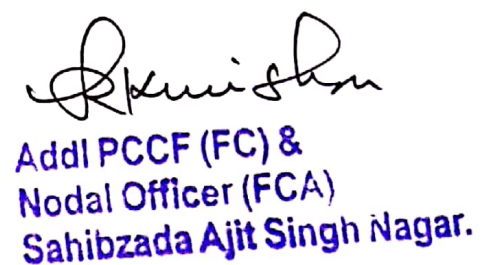 Addl PCCF (FC) &
Nodal Officer (FCA)
Sahibzada Ajit Singh Nagar.